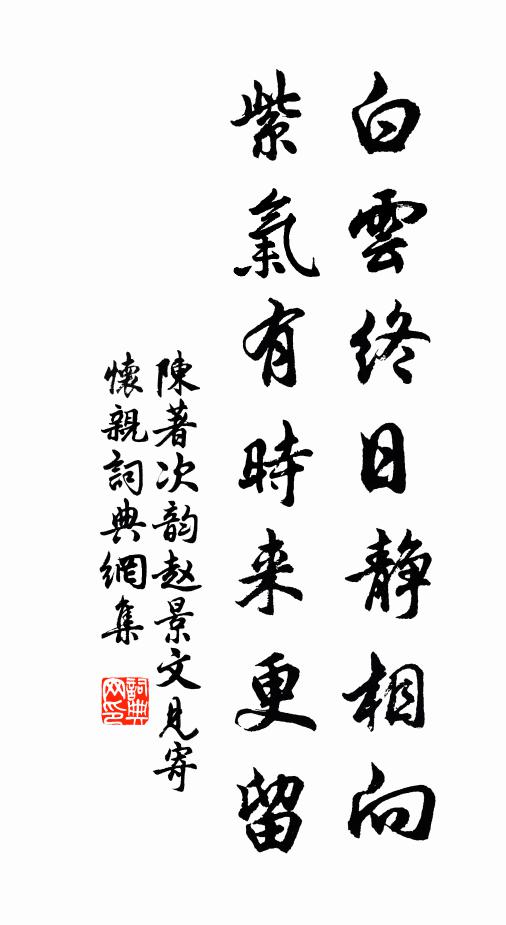 白雲終日静相向
紫氣有時来更留
陳著次韵赵景文見寄
懷親詞典網集
詞典
网印